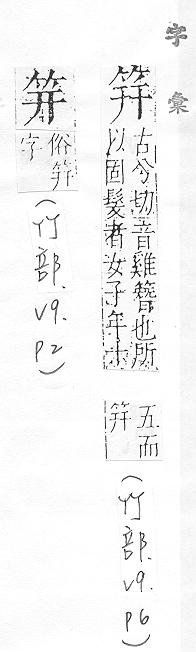 字彙
筓
古兮切音雞簪也所
以固髮者女子年十
五而
筓
(竹部.v9.p6)
笄
俗筓
字
(竹部.v9.p2)